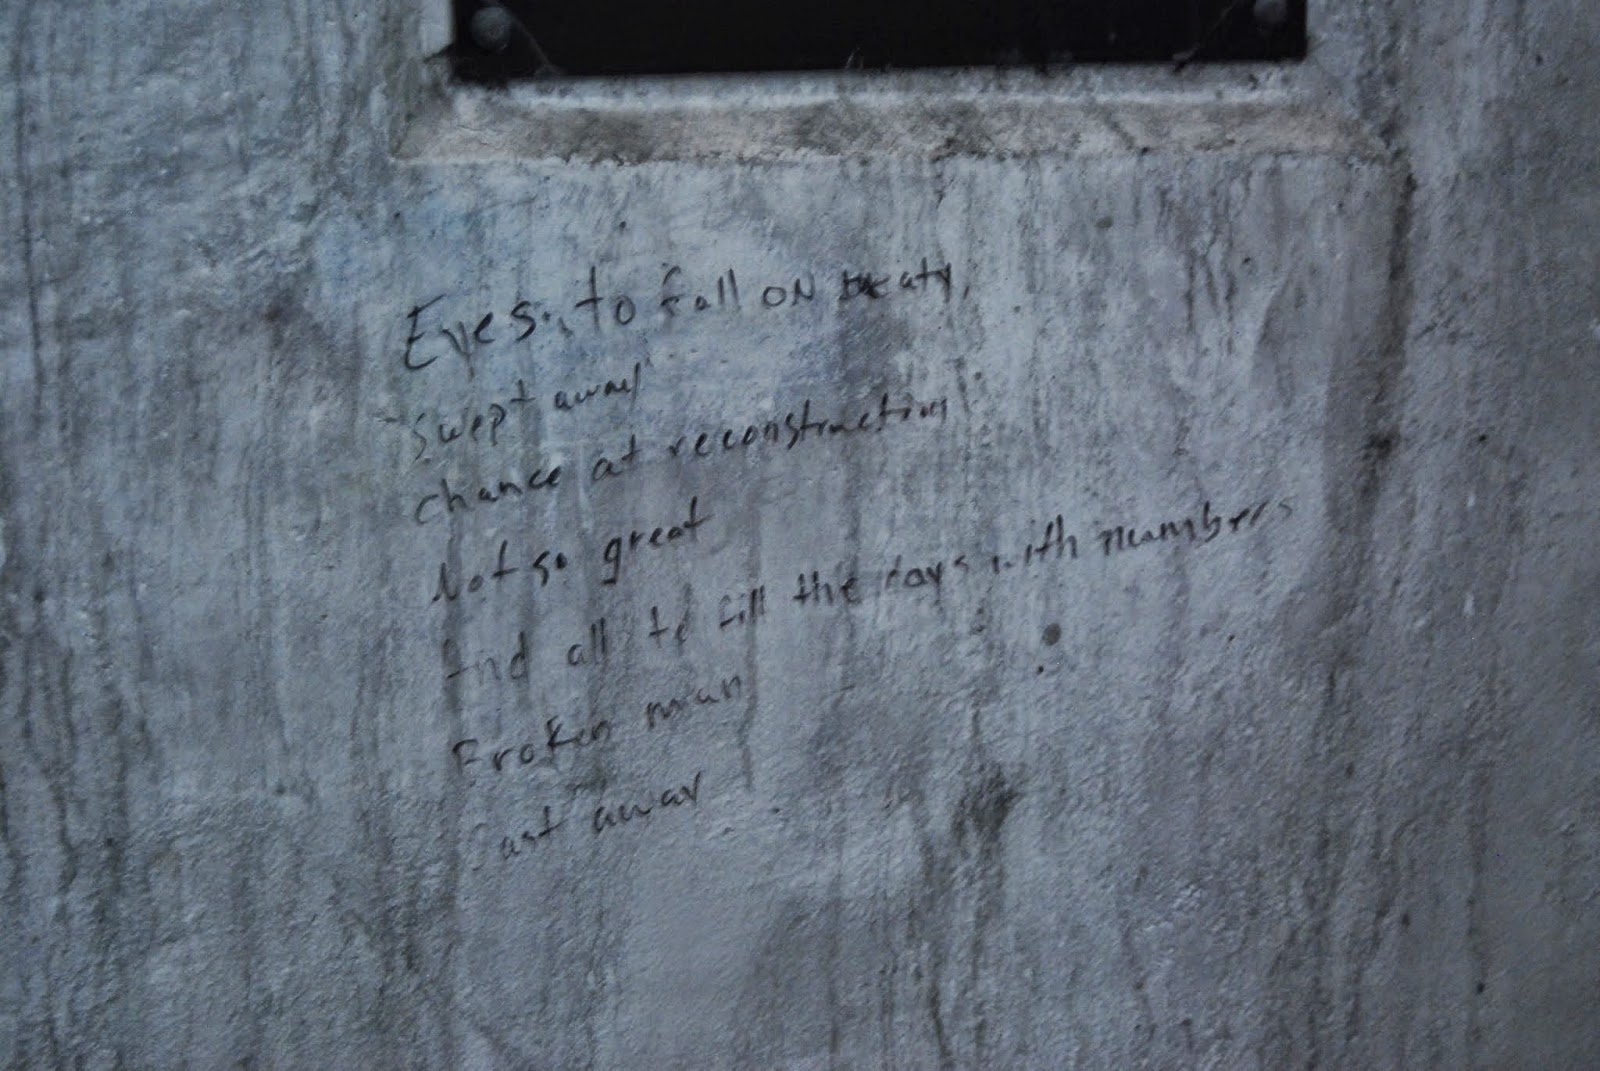 Eyes to fall on beaty,
Swept away
chance at reconstruction
Not so great
And all to fill the days with numbers
Broken man
Cast away